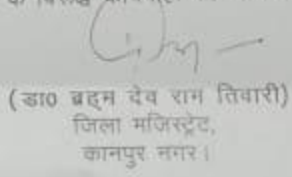 (डा० ब्रह्म देव राम तिवारी)
जिला मजिस्ट्रेट,
कानपुर नगर।